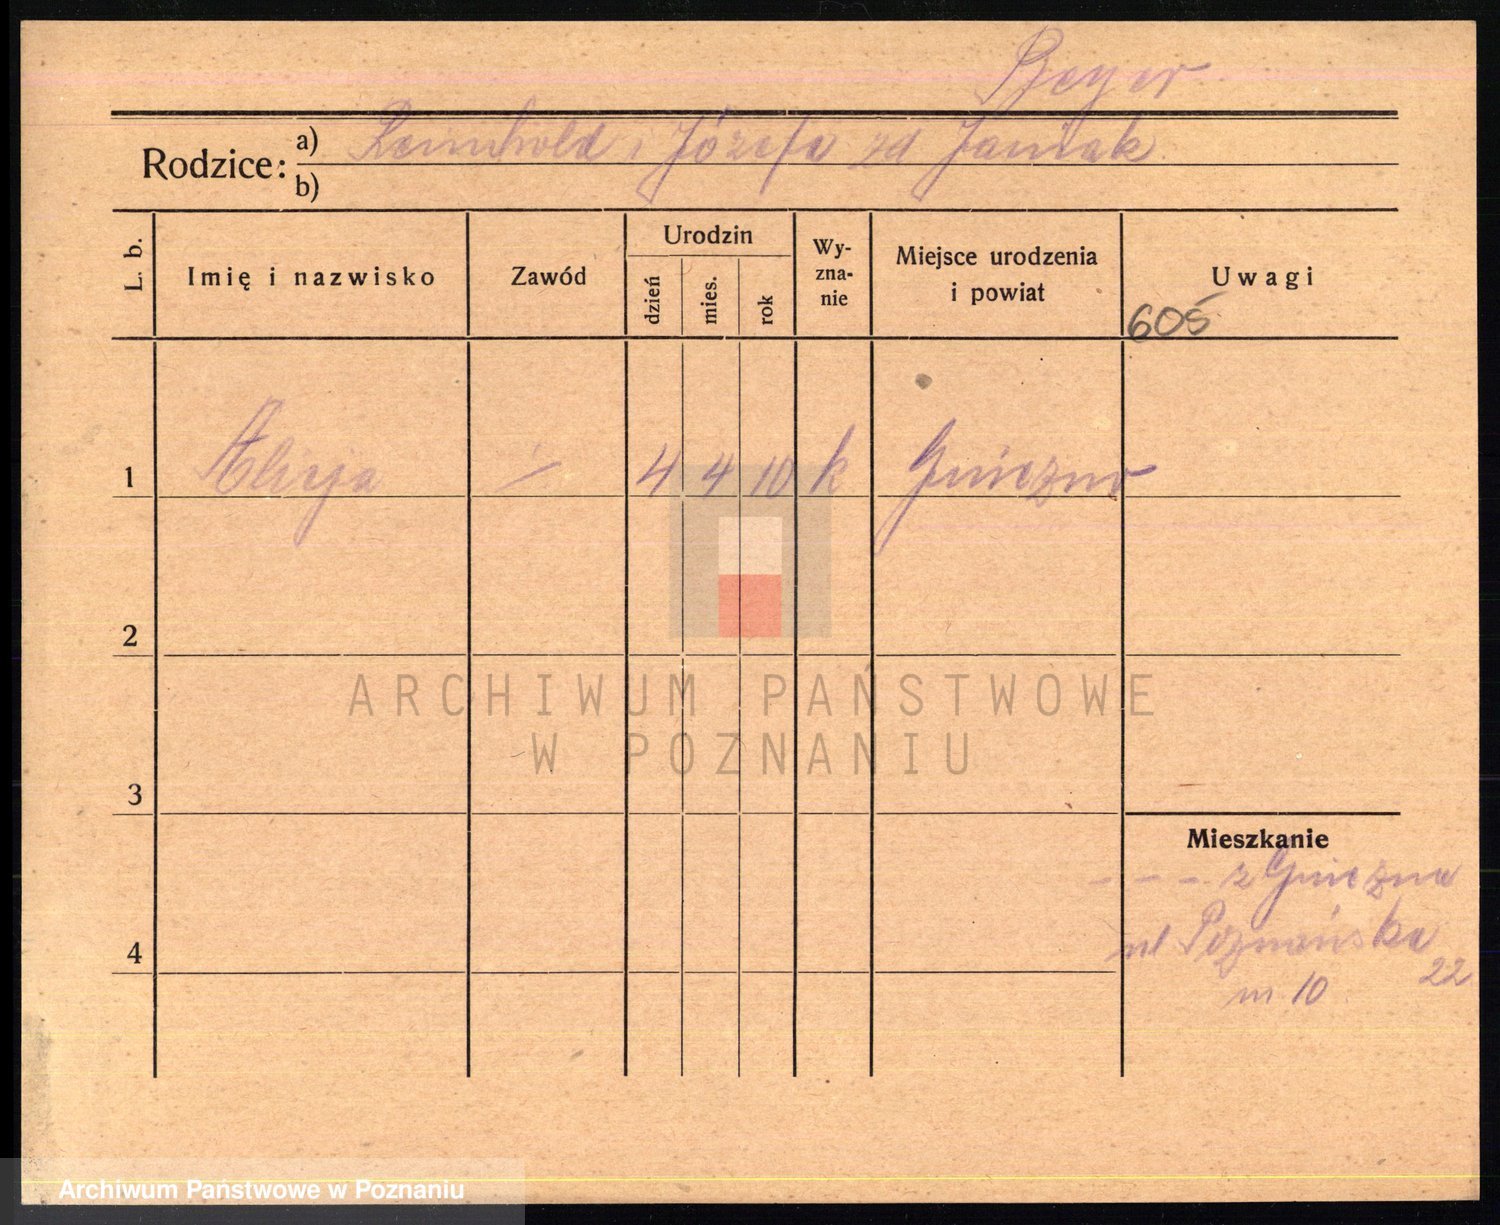 Beyer
Rodzice: a) Reinhold i Józefa zd Janiak
b)
L. b.
Imię i nazwisko
Zawód
Urodzin
dzień
mies.
rok
Wy-
zna-
nie
Miejsce urodzenia
i powiat
Uwagi
605
1 Alicja – 4 4 10 k Gniezno
2
3
4
Mieszkanie
– – – z Gniezna
ul Poznańska
22
m 10
ARCHIWUM PAŃSTWOWE
W POZNANIU
Archiwum Państwowe w Poznaniu